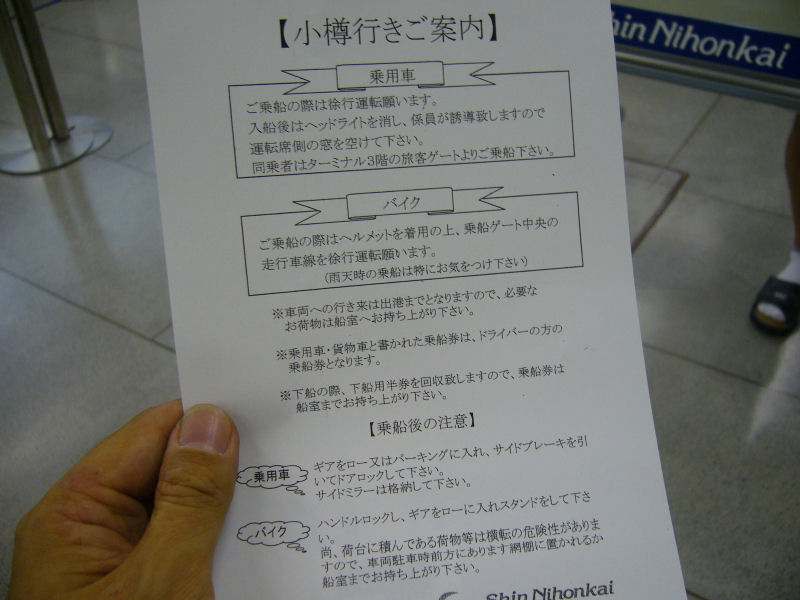 Shin Nihonkai
【小樽行きご案内】
乗用車
ご乗船の際は徐行運転願います。
入船後はヘッドライトを消し、係員が誘導致しますので
運転席側の窓を空けて下さい。
同乗者はターミナル3階の旅客ゲートよりご乗船下さい。
バイク
ご乗船の際はヘルメットを着用の上、乗船ゲート中央の
走行車線を徐行運転願います。
(雨天時の乗船は特にお気をつけ下さい)
※車両への行き来は出港までとなりますので、必要な
お荷物は船室へお持ち上がり下さい。
※乗用車・貨物車と書かれた乗船券は、ドライバーの方の
乗船券となります。
※下船の際、下船用半券を回収致しますので、乗船券は
船室までお持ち上がり下さい。
【乗船後の注意】
乗用車
ギアをロー又はパーキングに入れ、サイドブレーキを引
いてドアロックして下さい。
サイドミラーは格納して下さい。
バイク
ハンドルロックし、ギアをローに入れスタンドをして下さ
い。
尚、荷台に積んである荷物等は横転の危険性がありま
すので、車両駐車時前方にあります網棚に置かれるか
船室までお持ち上がり下さい。
Shin Nihonkai